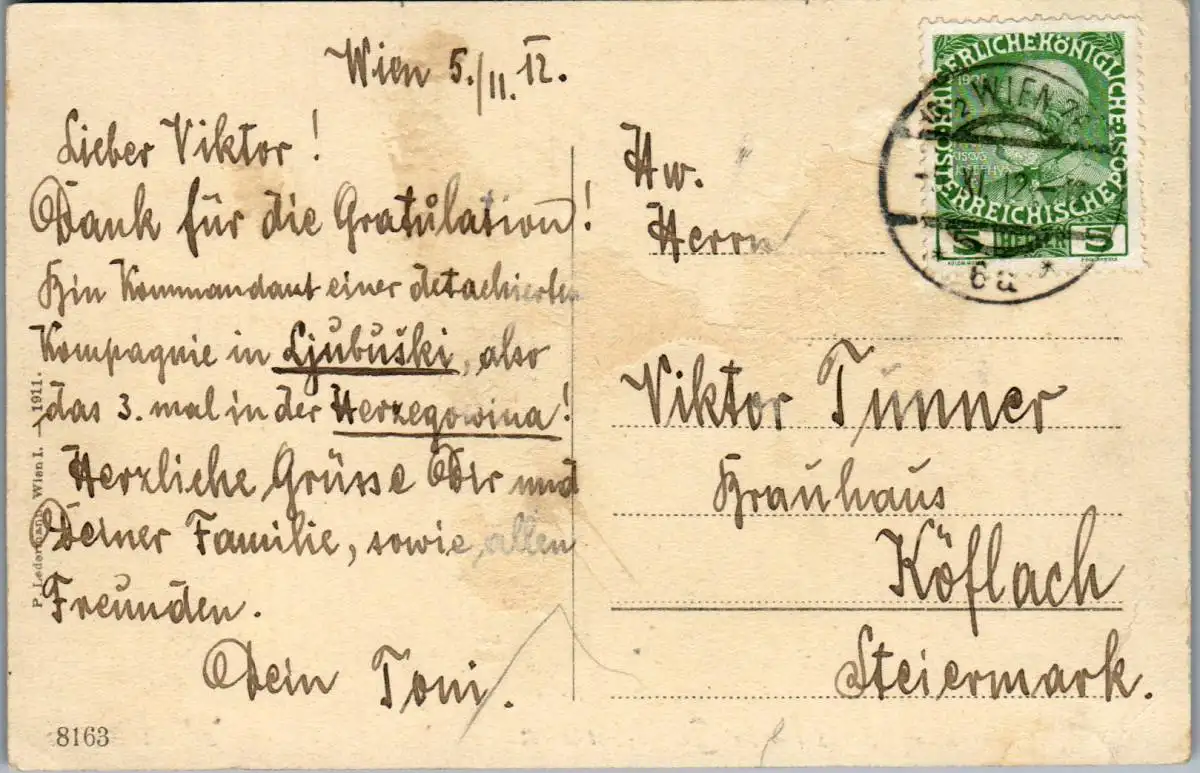 Wien 5./11. 12.
Lieber Viktor!
Dank für die Gratulation!
Bin Kommandant einer detachierten
Kompagnie in Ljubuški, also
das 3. mal in der Herzegowina!
Herzliche Grüsse Dir und
Deiner Familie, sowie allen
Freunden.
Dein Toni.
P. Ledermann, Wien I. — 1911.
8163
Hw.
Herrn
Viktor Tunner
Brauhaus
Köflach
Steiermark.
KAISERLICHEKÖNIGLICHE
ÖSTERREICHISCHEPOST
5 HELLER 5
WIEN
XI 12
6a *